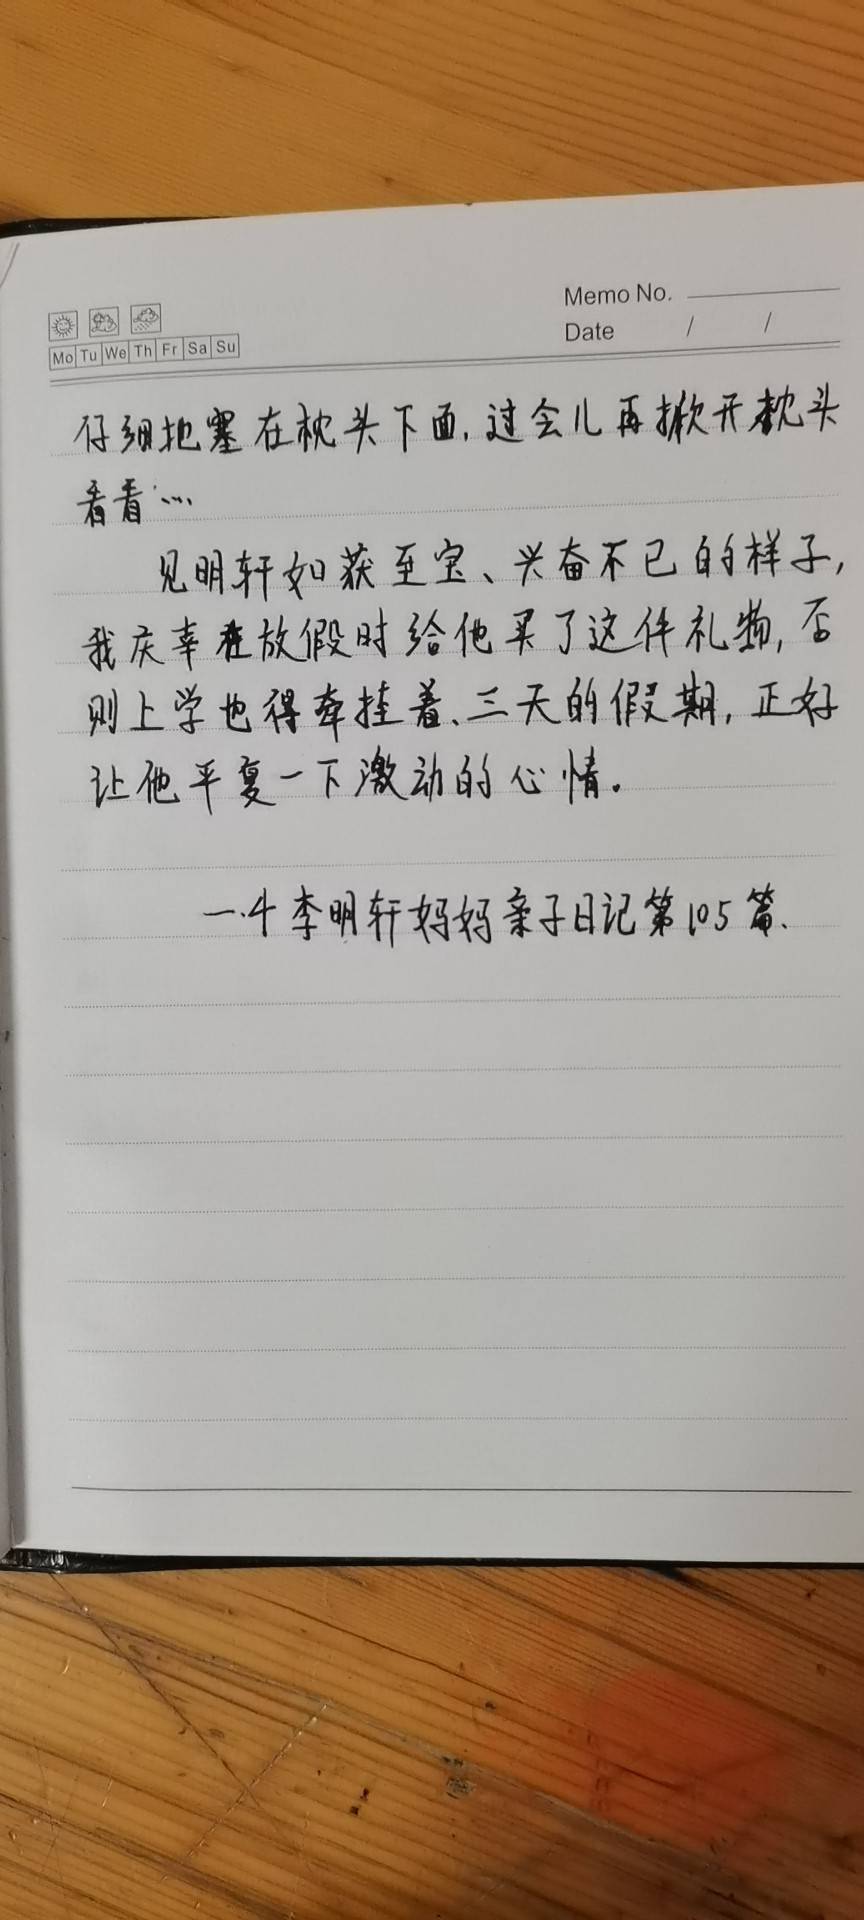 Memo No.
Date / /
Mo Tu We Th Fr Sa Su
仔细地塞在枕头下面,过会儿再掀开枕头
看看…
见明轩如获至宝、兴奋不已的样子,
我庆幸在放假时给他买了这件礼物,否
则上学也得牵挂着、三天的假期,正好
让他平复一下激动的心情。
一.4李明轩妈妈亲子日记第105篇、